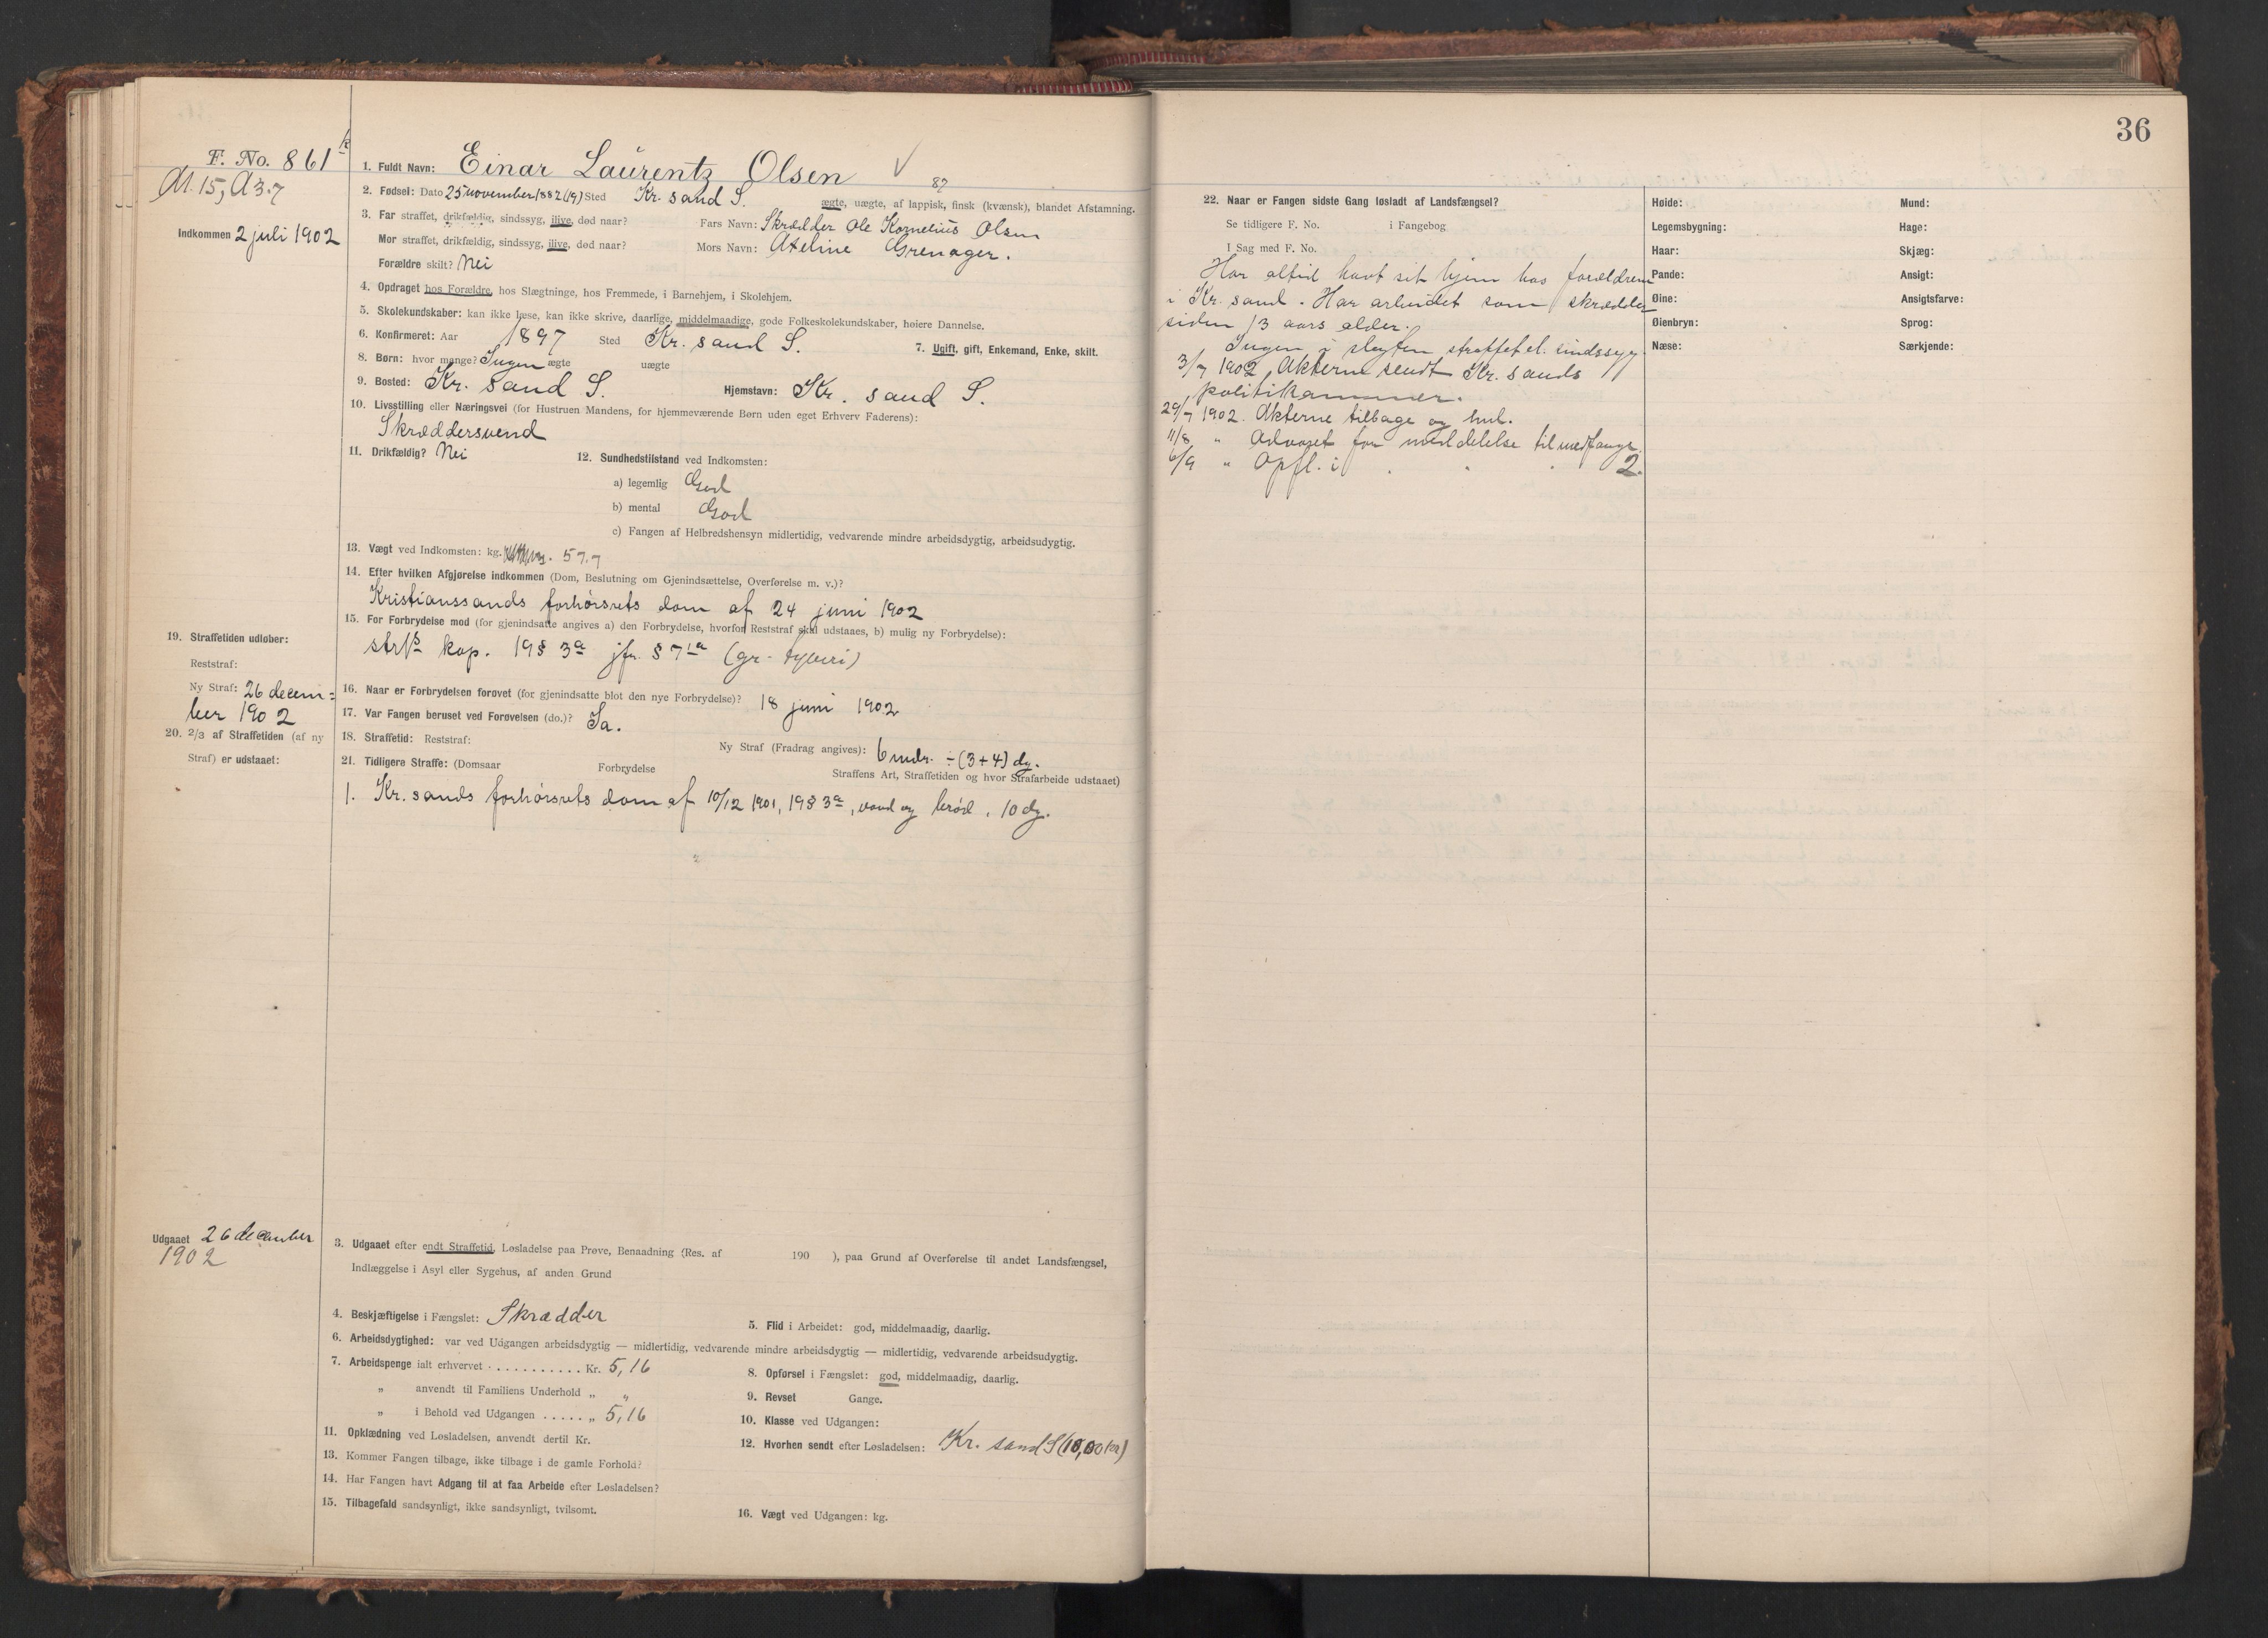 F. No. 861
Al. 15, A 3.7
Indkommen 2 juli 1902
1. Fuldt Navn: Einar Laurentz Olsen
82
2. Fødsel: Dato 25 november 1882 (19) Sted Kr. sand S. ægte, uægte, af lappisk, finsk (kvænsk), blandet Afstamning.
3. Far straffet, drikfældig, sindssyg, ilive, død naar? Fars Navn: Skrædder Ole Kornelius Olsen
Mor straffet, drikfældig, sindssyg, ilive, død naar? Mors Navn: Axeline Grenager.
Forældre skilt? Nei
4. Opdraget hos Forældre, hos Slægtninge, hos Fremmede, i Barnehjem, i Skolehjem.
5. Skolekundskaber: kan ikke læse, kan ikke skrive, daarlige, middelmaadige, gode Folkeskolekundskaber, høiere Dannelse.
6. Konfirmeret: Aar 1897 Sted Kr. sand S. 7. Ugift, gift, Enkemand, Enke, skilt.
8. Børn: hvor mange? Ingen ægte uægte
9. Bosted: Kr. sand S. Hjemstavn: Kr. sand S.
10. Livsstilling eller Næringsvei (for Hustruen Mandens, for hjemmeværende Børn uden eget Erhverv Faderens):
Skræddersvend
11. Drikfældig? Nei 12. Sundhedstilstand ved Indkomsten:
a) legemlig God
b) mental God
c) Fangen af Helbredshensyn midlertidig, vedvarende mindre arbeidsdygtig, arbeidsudygtig.
13. Vægt ved Indkomsten: kg. 57.7
14. Efter hvilken Afgjørelse indkommen (Dom, Beslutning om Gjenindsættelse, Overførelse m. v.)?
Kristianssands forhørsrets dom af 24 juni 1902
15. For Forbrydelse mod (for gjenindsatte angives a) den Forbrydelse, hvorfor Reststraf skal udstaaes, b) mulig ny Forbrydelse):
kap. 19 § 3a jfr. § 7 1a (gr. tyveri)
16. Naar er Forbrydelsen forøvet (for gjenindsatte blot den nye Forbrydelse)? 18 juni 1902
17. Var Fangen beruset ved Forøvelsen (do.)? Ja.
18. Straffetid: Reststraf: Ny Straf (Fradrag angives): 6 mdr. ÷ (3+4) dg.
19. Straffetiden udløber:
Reststraf:
Ny Straf: 26 decem=
ber 1902
20. 2/3 af Straffetiden (af ny
Straf) er udstaaet:
21. Tidligere Straffe: (Domsaar Forbrydelse Straffens Art, Straffetiden og hvor Strafarbeide udstaaet)
1. Kr. sands forhørsrets dom af 10/12 1901, 19 § 3a, vand og brød, 10 dg.
Udgaaet 26 december
1902
3. Udgaaet efter endt Straffetid, Løsladelse paa Prøve, Benaadning (Res. af 190 ), paa Grund af Overførelse til andet Landsfængsel,
Indlæggelse i Asyl eller Sygehus, af anden Grund
4. Beskjæftigelse i Fængslet: Skrædder 5. Flid i Arbeidet: god, middelmaadig, daarlig.
6. Arbeidsdygtighed: var ved Udgangen arbeidsdygtig — midlertidig, vedvarende mindre arbeidsdygtig — midlertidig, vedvarende arbeidsudygtig.
7. Arbeidspenge ialt erhvervet . . . . . . . . . . . Kr. 5,16 8. Opførsel i Fængslet: god, middelmaadig, daarlig.
„ anvendt til Familiens Underhold „ „ 9. Revset Gange.
„ i Behold ved Udgangen . . . . . „ 5,16 10. Klasse ved Udgangen:
11. Opklædning ved Løsladelsen, anvendt dertil Kr. 12. Hvorhen sendt efter Løsladelsen: Kr. sand S (10,00 kr)
13. Kommer Fangen tilbage, ikke tilbage i de gamle Forhold?
14. Har Fangen havt Adgang til at faa Arbeide efter Løsladelsen?
15. Tilbagefald sandsynligt, ikke sandsynligt, tvilsomt. 16. Vægt ved Udgangen: kg.
36
22. Naar er Fangen sidste Gang løsladt af Landsfængsel?
Se tidligere F. No. i Fangebog
I Sag med F. No.
Har altid havt sit hjem hos forældrene
i Kr. sand. Har arbeidet som skrædder
siden 13 aars alder.
Ingen i slegten straffet el. sindssyg.
3/7 1902, Akterne sendt Kr. sands
politikammer.
29/7 1902. Akterne tilbage og hnl.
11/8 „ Advaret for meddelelse til medfange
6/9 „ Opfl. i . „ . 2.
Høide: Mund:
Legemsbygning: Hage:
Haar: Skjæg:
Pande: Ansigt:
Øine: Ansigtsfarve:
Øienbryn: Sprog:
Næse: Særkjende: